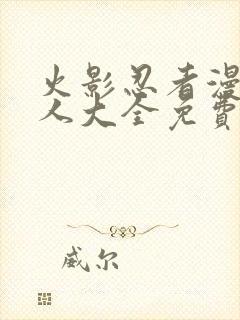 火影忍者漫
人大全免费
威尔